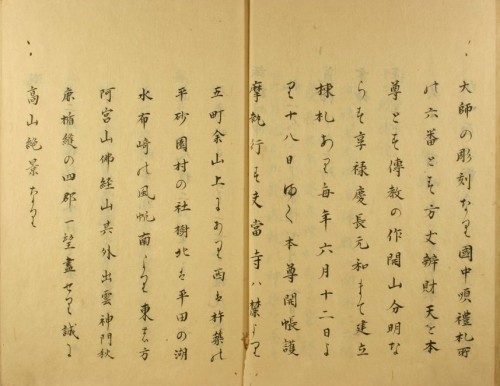 大師の彫刻なり國中順禮札所
の六番とす方丈辨財天を本
尊とす傳教の作開山分明な
らす享禄慶長元和まて建立
棟札あり毎年六月十二日よ
り十八日まて本尊開帳護
摩執行す夫當寺ハ麓より
五町余山上にあり西は杵築の
平砂園村の社樹北は平田の湖
水布崎の風帆南より東は方
阿宮山佛経山其外出雲神門秋
鹿楯縫の四郡一望盡せり誠に
高山絶景なり